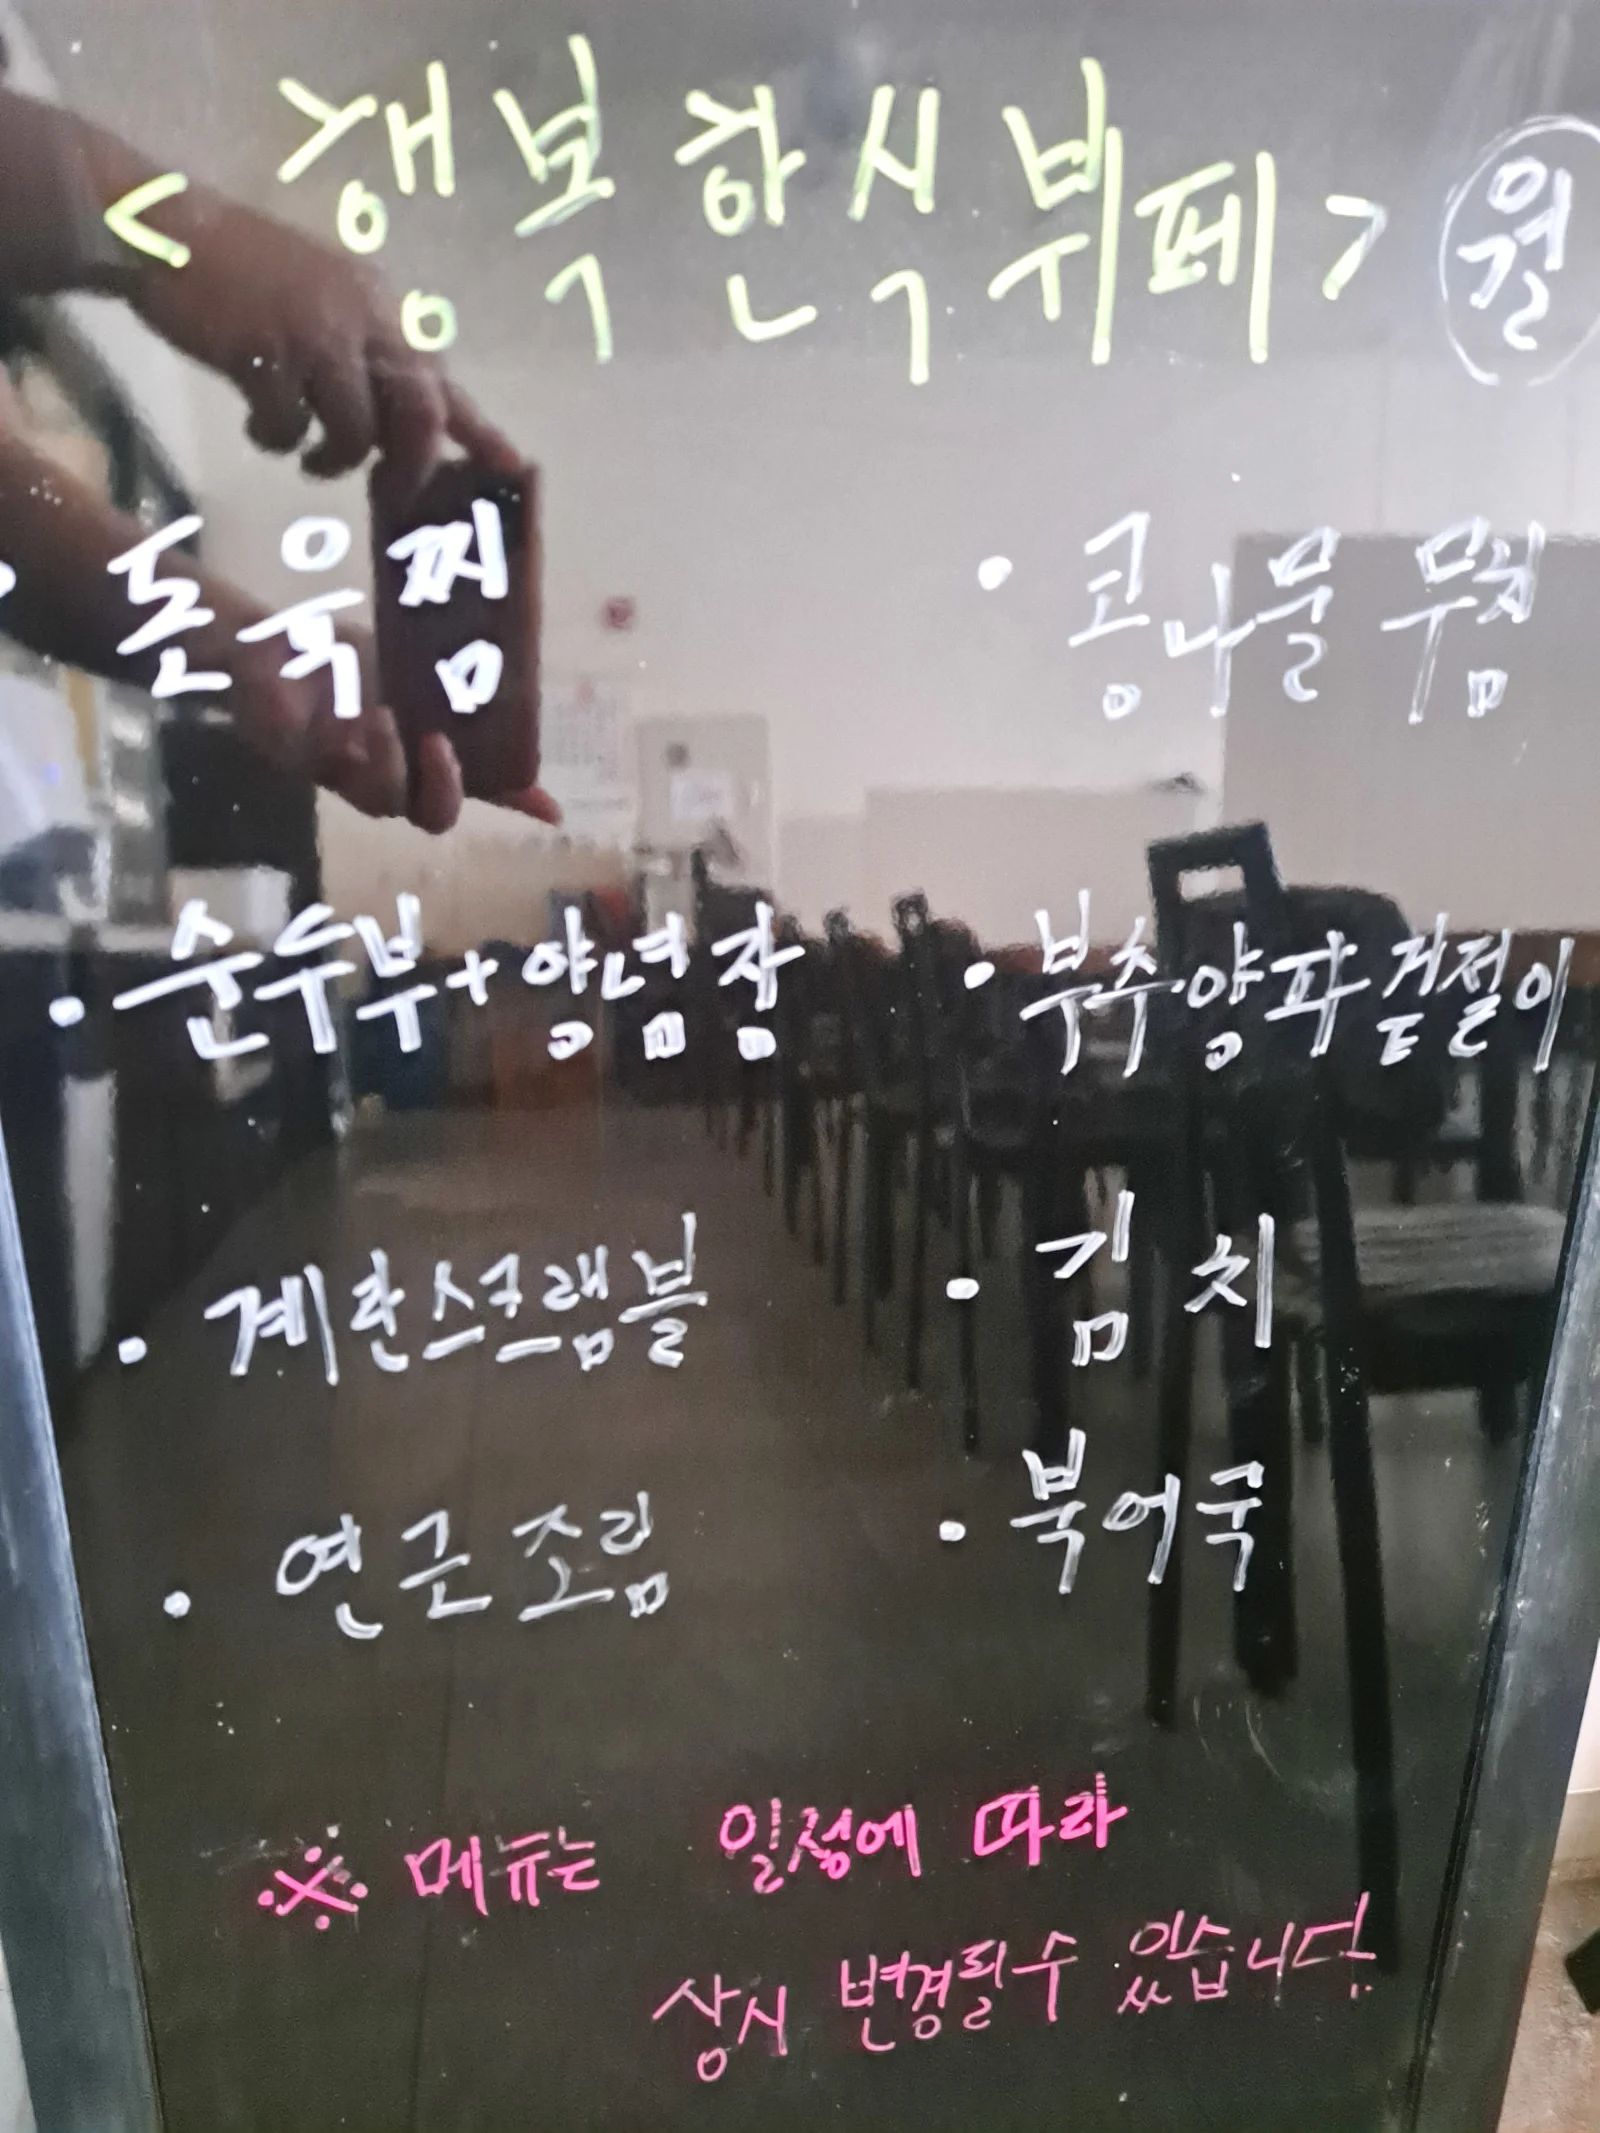 <행복한식뷔페> 월
· 돈육찜
· 콩나물무침
· 순두부+양념장
· 부추양파겉절이
· 계란스크램블
· 김치
· 연근조림
· 북어국
※ 메뉴는 일정에 따라
상시 변경될수 있습니다.